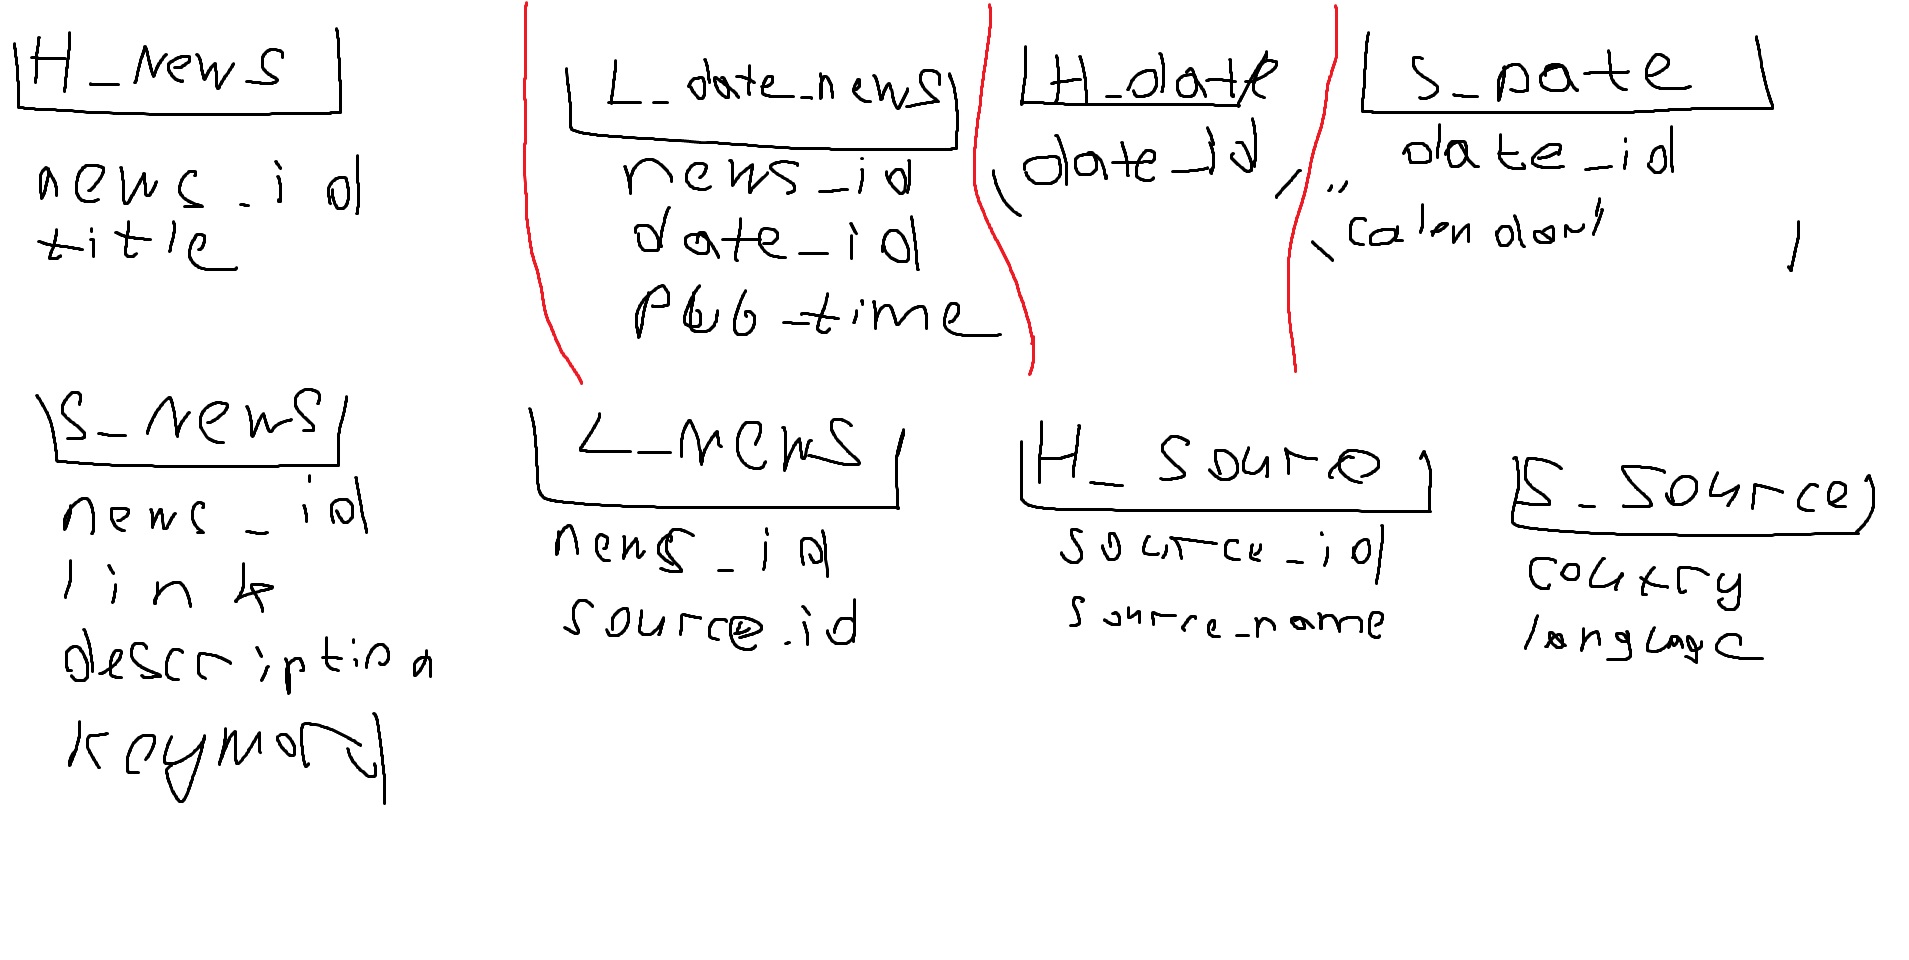 H_News
news_id
title
L_date_news
news_id
date_id
pub_time
H_date
date_id
S_Date
date_id
"calendar"
S_News
news_id
link
description
keyword
L_news
news_id
source_id
H_source
source_id
source_name
S_source
country
language